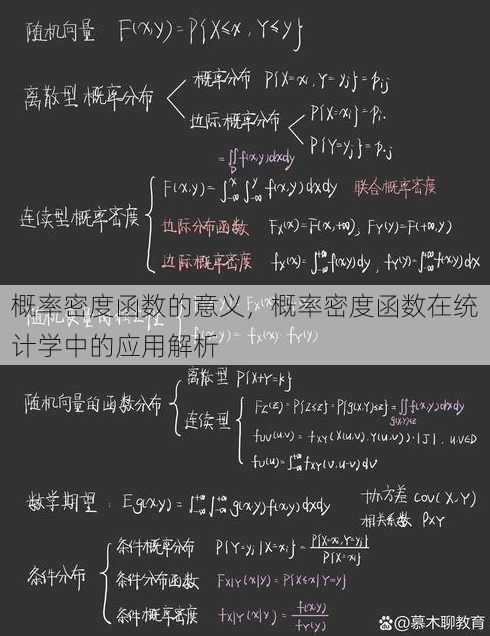 随机向量 F(x,y)=P{X≤x,Y≤y}
离散型概率分布
概率分布 P{X=xi,Y=yj}=pij
边际概率分布
P{X=xi}=pi·
P{Y=yj}=p·j
=∬f(x,y)dxdy
D
连续型概率密度
F(x,y)=∫-∞^x∫-∞^y f(x,y)dxdy 联合概率密度
边际分布函数 Fx(x)=F(x,+∞), FY(y)=F(+∞,y)
边际概率密度 fx(x)=∫-∞^+∞f(x,y)dy, fY(y)=∫-∞^+∞f(x,y)dx
概率密度函数的意义，概率密度函数在统
计学中的应用解析
随机向量的函数分布
离散型 P{X+Y=k}
连续型
Fz(z)=P{Z≤z}=P{g(X,Y)≤z}=∬f(x,y)dxdy
g(x,y)≤z
fUV(u,v)=fXY(x(u,v),y(u,v))·|J|, u,v∈D
fU(u)=∫-∞^+∞fXY(v,u-v)dv
数学期望: Eg(x,y)=∫-∞^+∞∫-∞^+∞g(x,y)f(x,y)dxdy
协方差 COV(X,Y)
相关系数 ρXY
条件分布
条件概率分布 P{Y=yj|X=xi}=P{X=xi,Y=yj}/P{X=xi}
条件分布函数 FX|Y(x|y)=P{X≤x|Y=y}
条件概率密度 fX|Y(x|y)=f(x,y)/fY(y)
@慕木聊教育